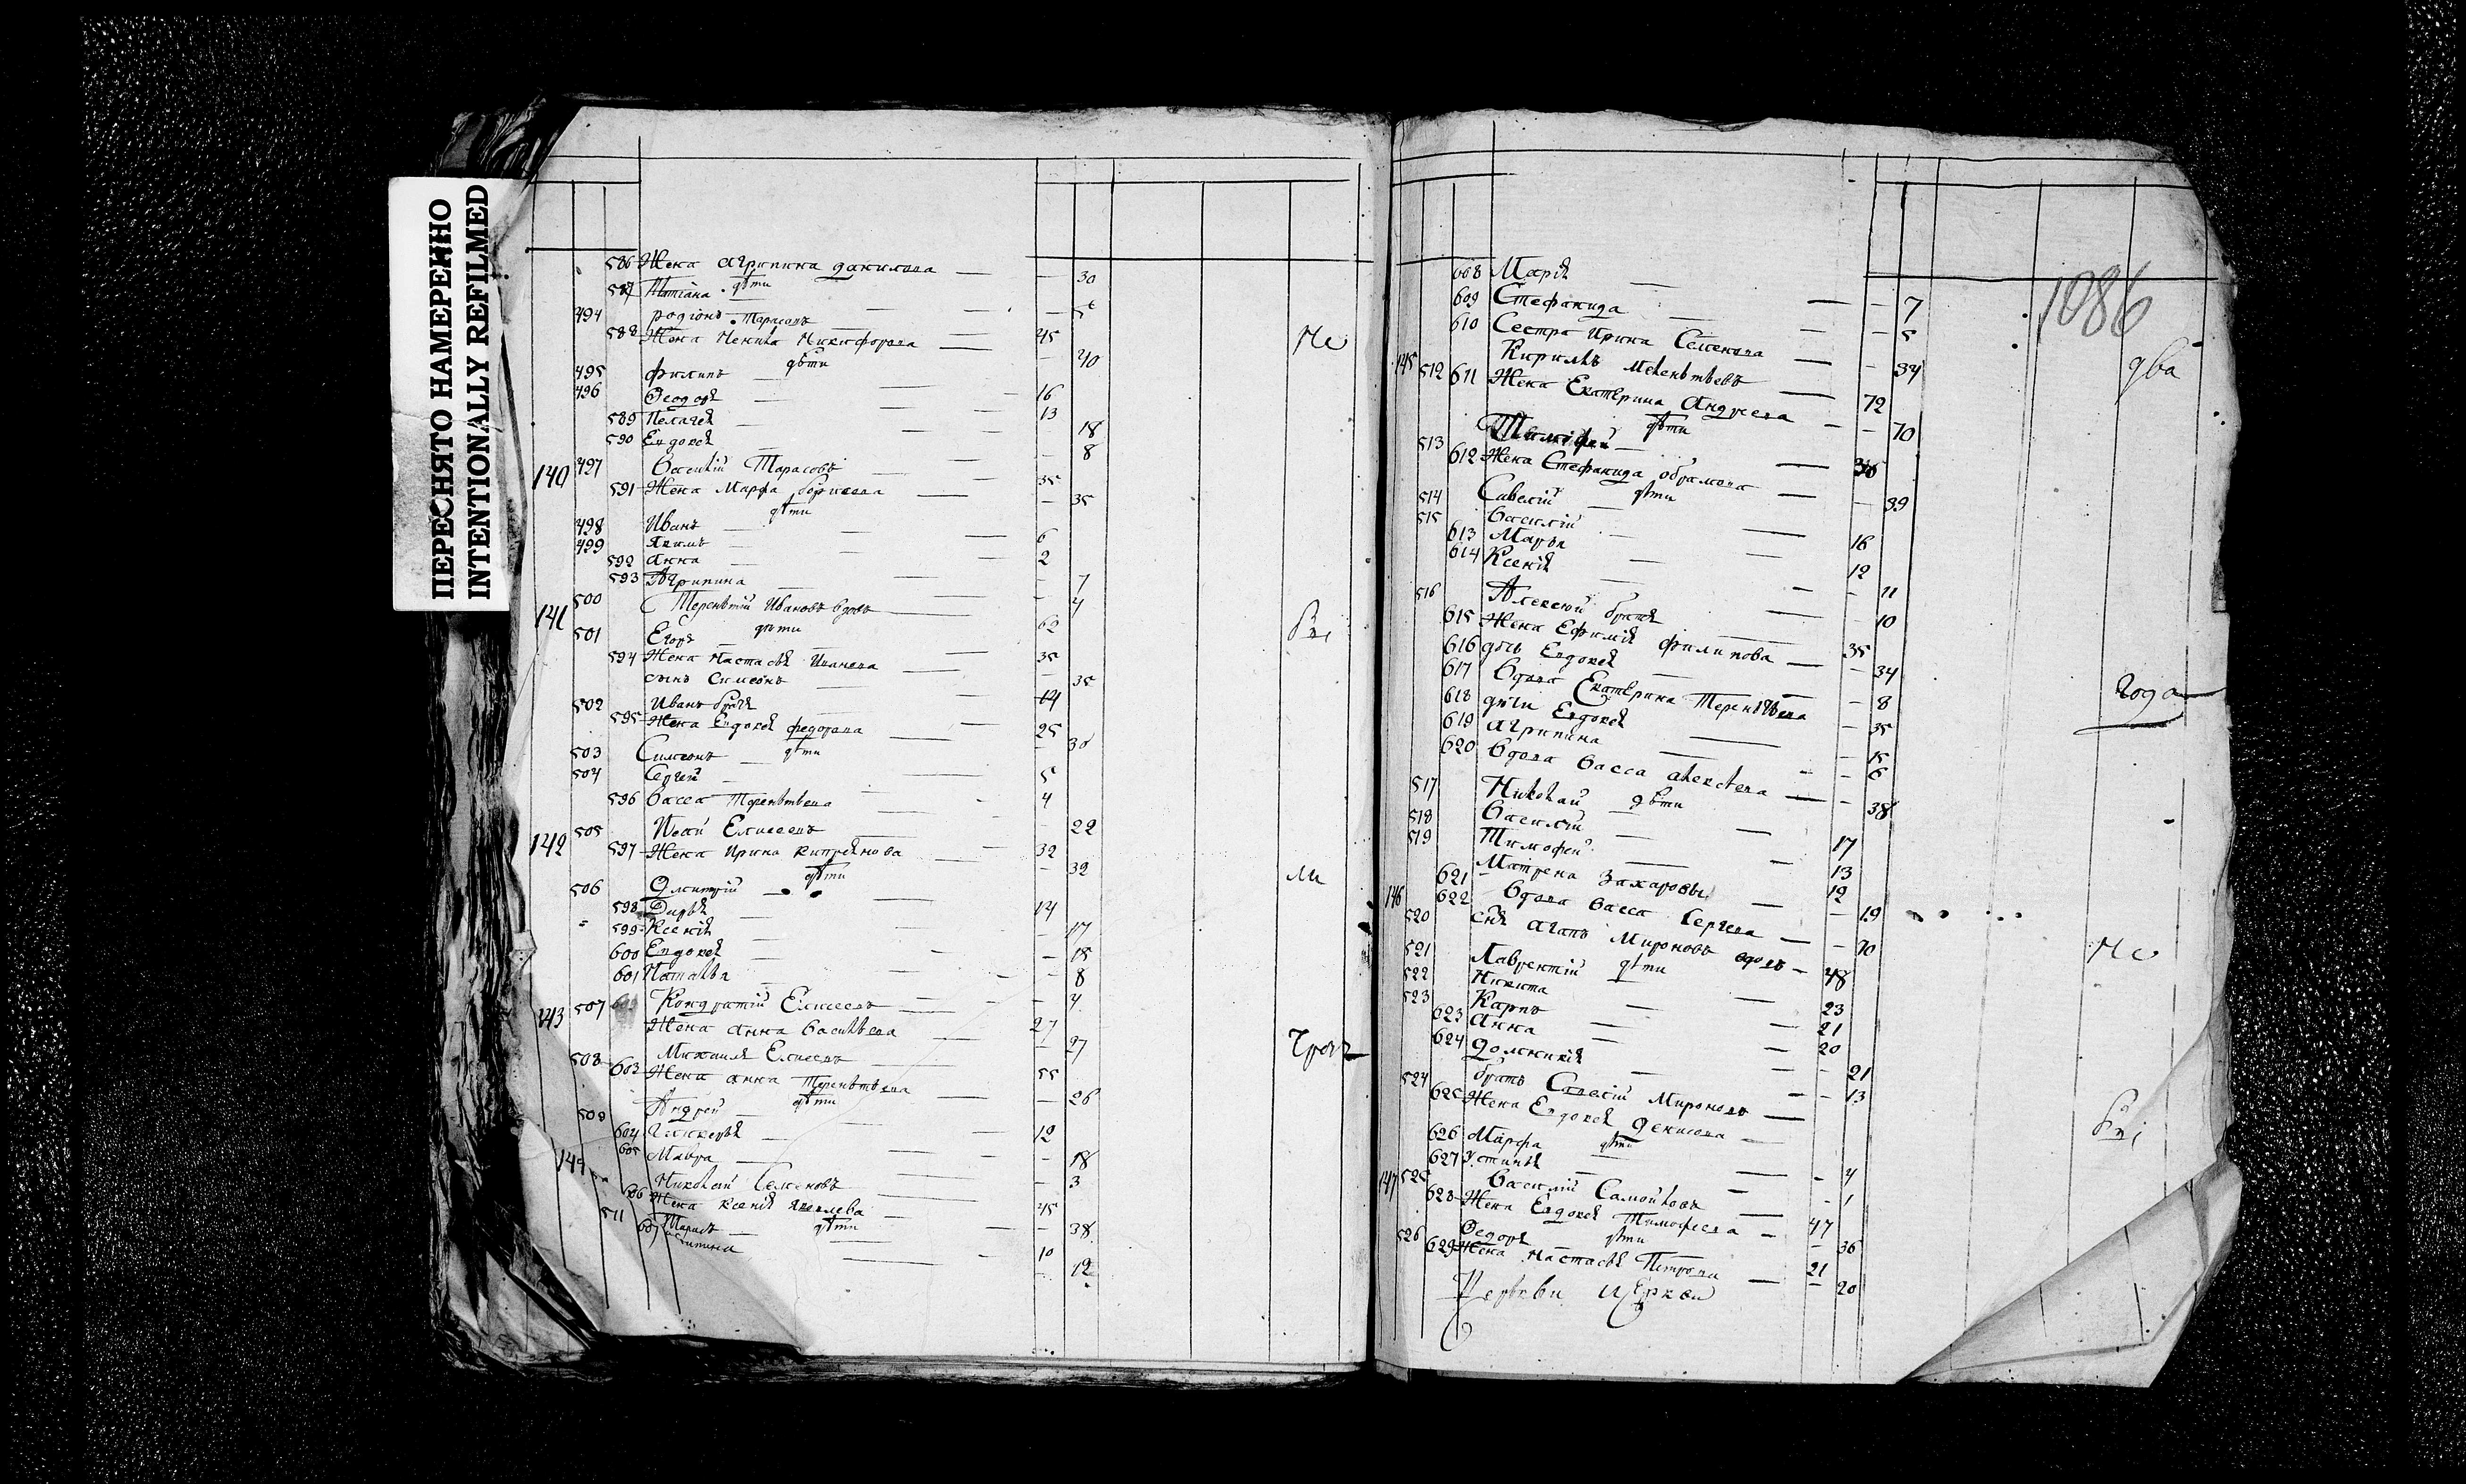 ПЕРЕСНЯТО НАМЕРЕННО
INTENTIONALLY REFILMED
586 Жена Агрипина Данилова — — 30
587 Татiана дѣти —
494 родiонъ Тарасовъ — 45
588 Жена Никифорова — — 40
дѣти
495 Филипъ — 16
496 Ѳеодоръ — 13
589 Пелагея — — 18
590 Евдокея — — 8
140 497 Василiй Тарасовъ — 35
591 Жена Марфа борисова — — 35
дѣти
498 Иванъ — 6
499 Якимъ — 2
592 Анна — — 7
593 Агрипина — — 4
141 500 Терентiй Ивановъ вдовъ — 62
дѣти
501 Егоръ — 35
594 Жена Настасья Иванова — — 35
сынъ Симеонъ — 14
502 Иванъ братъ — 25
595 Жена Евдокея федорова — — 30
дѣти
503 Симеонъ — 5
504 Сергей — 4
596 Васса Терентьева — — 22
142 505 Елисеевъ — 32
597 Жена Ирина Кипреянова — — 32
дѣти
506 Дмитрiй — 14
598 Дарья — — 17
599 Ксенiя — — 15
600 Евдокея — — 8
601 Наталья — — 4
143 507 Кондратiй Елисеевъ — 27
Жена Анна Васильева — — 27
508 Михаилъ Елисеевъ — 55
603 Жена Анна Терентьева — — 26
дѣти
509 Андрей — 12
604 Гликерья — — 18
605 Мавра — — 3
144 Николай Семеновъ — 45
606 Жена Ксенiя Яковлева — — 38
дѣти
511 — 10
607 — 12
608 Марiя — — 7
609 Стефанида — — 5
610 Сестра Ирина Семенова — — 34
1086
два
145 512 Кирилъ Мелентьевъ — 72
611 Жена Екатерина Андреева — — 70
дѣти
513 Тимофей — 36
612 Жена Стефанида Абрамова — — 39
дѣти
514 Савелiй — 16
515 Василiй — 12
613 Марья — — 11
614 Ксенiя — — 10
516 Алексей братъ — 35
615 Жена Ефимiя Филипова — — 34
616 дочь Евдокея — — 8
617 Вдова Екатерина Терентьева — — 35
618 дѣти Евдокея — — 15
619 Агрипина — — 6
года
620 Вдова Васса Алексеева — — 38
дѣти
517 Николай — 17
518 Василiй — 13
519 Тимофей — 12
621 Матрена Захаровы — — 19
146 622 Вдова Васса Сергеева — — 70
520 сынъ Агапъ Мироновъ вдовъ — 48
дѣти
521 Лаврентiй — 23
522 Никита — 21
523 Карпъ — 20
623 Анна — — 21
624 Домникiя — — 13
524 братъ Савелiй Мироновъ —
625 Жена Евдокея Денисова —
дѣти
626 Марфа — — 4
627 Устинья — — 1
147 525 Василiй Самойловъ — 47
628 Жена Евдокея Тимофеева — — 36
дѣти
526 Ѳедоръ — 21
629 Жена Настасья Петрова — — 20
Церкви